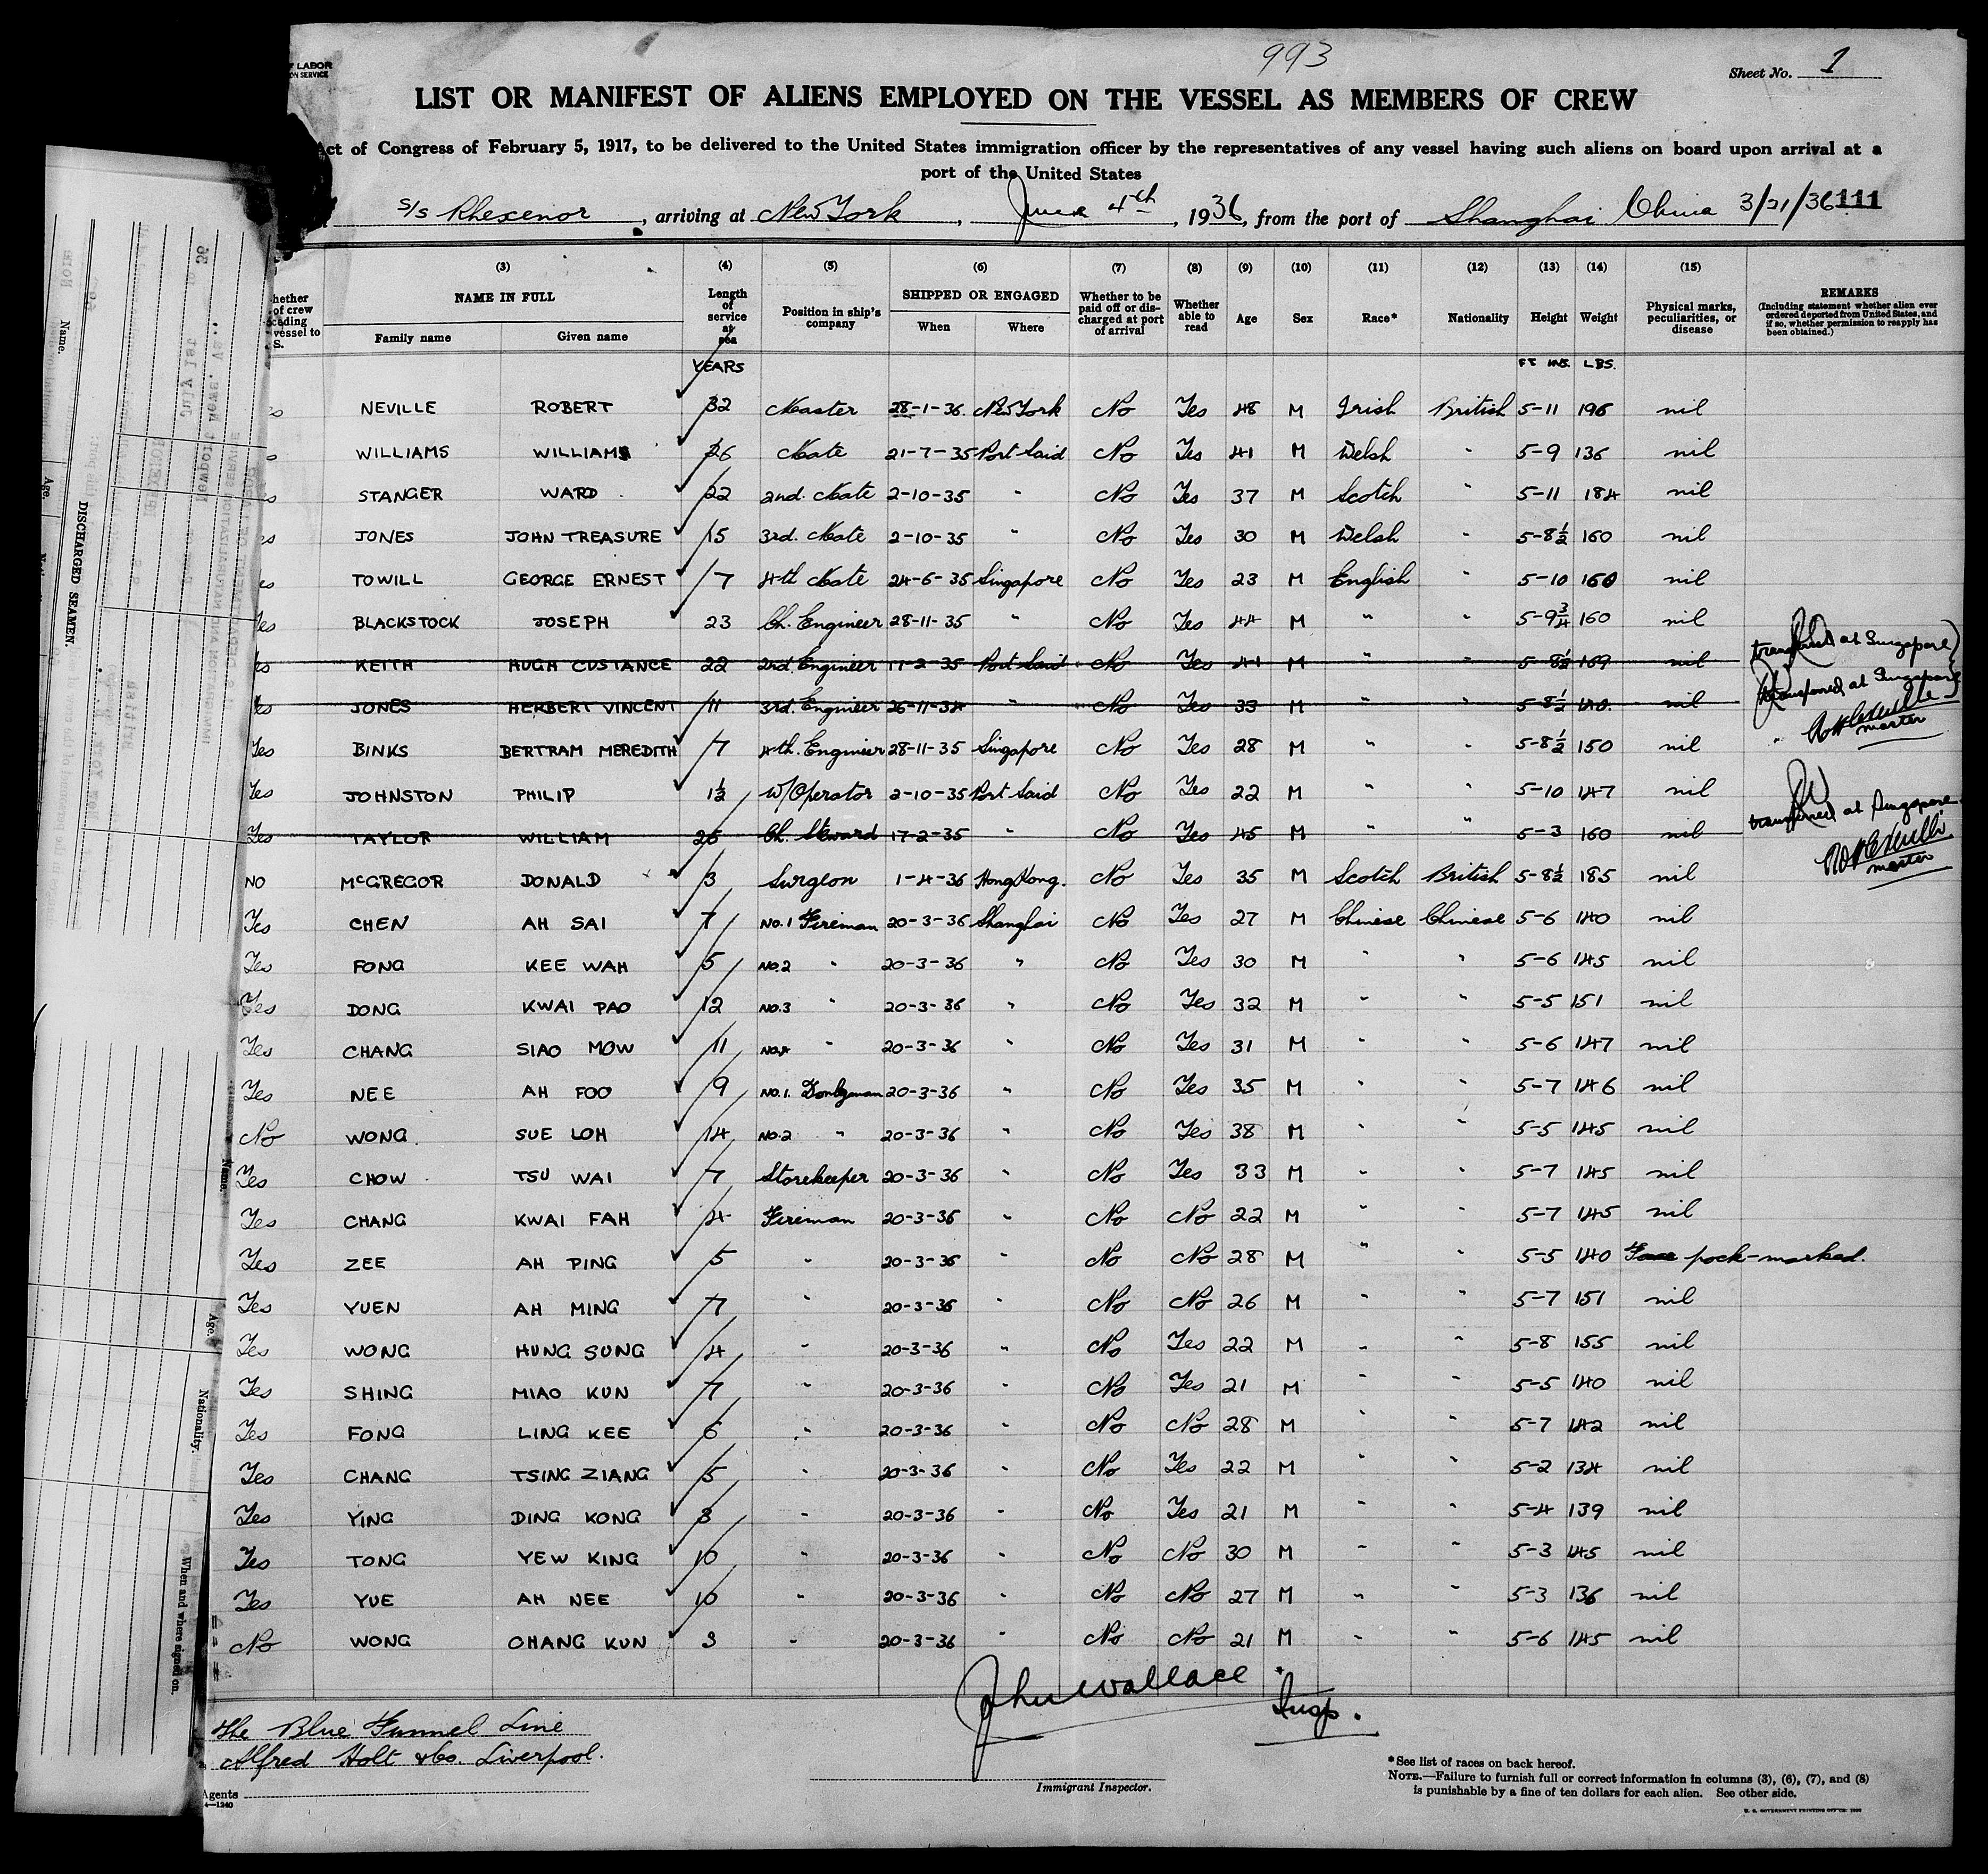 993
LABOR
ON SERVICE
Sheet No. 1
LIST OR MANIFEST OF ALIENS EMPLOYED ON THE VESSEL AS MEMBERS OF CREW
Act of Congress of February 5, 1917, to be delivered to the United States immigration officer by the representatives of any vessel having such aliens on board upon arrival at a
port of the United States
S/S Rhexenor, arriving at New York, June 4th, 1936, from the port of Shanghai China 3/21/36 111
(3) (4) (5) (6) (7) (8) (9) (10) (11) (12) (13) (14) (15)
hether of crew vessel to S. NAME IN FULL Family name Given name Length of service at sea Position in ship's company SHIPPED OR ENGAGED When Where Whether to be paid off or discharged at port of arrival Whether able to read Age Sex Race* Nationality Height Weight Physical marks, peculiarities, or disease REMARKS (Including statement whether alien ever ordered deported from United States, and if so, whether permission to reapply has been obtained.)
YEARS FT INS. LBS.
NEVILLE ROBERT 32 Master 28-1-36. New York No Yes 48 M Irish British 5-11 196 nil
WILLIAMS WILLIAMS 26 Mate 21-7-35 Port Said No Yes 41 M Welsh " 5-9 136 nil
STANGER WARD 22 2nd. Mate 2-10-35 " No Yes 37 M Scotch " 5-11 184 nil
JONES JOHN TREASURE 15 3rd. Mate 2-10-35 " No Yes 30 M Welsh " 5-8½ 160 nil
TOWILL GEORGE ERNEST 7 4th Mate 24-6-35 Singapore No Yes 23 M English " 5-10 160 nil
Yes BLACKSTOCK JOSEPH 23 Ch. Engineer 28-11-35 " No Yes 44 M " " 5-9¾ 160 nil
Yes KEITH HUGH CUSTANCE 22 2nd. Engineer 11-2-35 Port Said No Yes 41 M " " 5-8½ 169 nil transferred at Singapore
Yes JONES HERBERT VINCENT 11 3rd. Engineer 26-11-34 " No Yes 33 M " " 5-8½ 140. nil transferred at Singapore
master
Yes BINKS BERTRAM MEREDITH 7 4th. Engineer 28-11-35 Singapore No Yes 28 M " " 5-8½ 150 nil "
Yes JOHNSTON PHILIP 1½ W/Operator 2-10-35 Port Said No Yes 22 M " " 5-10 147 nil
Yes TAYLOR WILLIAM 25 Ch. Steward 17-2-35 " No Yes 45 M " " 5-3 160 nil transferred at Singapore
master
NO McGREGOR DONALD 3 Surgeon 1-4-36 Hong Kong. No Yes 35 M Scotch British 5-8½ 185 nil
Yes CHEN AH SAI 7 NO.1 Fireman 20-3-36 Shanghai No Yes 27 M Chinese Chinese 5-6 140 nil
Yes FONG KEE WAH 5 NO.2 " 20-3-36 " No Yes 30 M " " 5-6 145 nil
Yes DONG KWAI PAO 12 NO.3 " 20-3-36 " No Yes 32 M " " 5-5 151 nil
Yes CHANG SIAO MOW 11 NO.4 " 20-3-36 " No Yes 31 M " " 5-6 147 nil
Yes NEE AH FOO 9 NO.1. Donkyman 20-3-36 " No Yes 35 M " " 5-7 146 nil
No WONG SUE LOH 14 NO.2 " 20-3-36 " No Yes 38 M " " 5-5 145 nil
Yes CHOW TSU WAI 7 Storekeeper 20-3-36 " No Yes 33 M " " 5-7 145 nil
Yes CHANG KWAI FAH 4 Fireman 20-3-36 " No No 22 M " " 5-7 145 nil
Yes ZEE AH PING 5 " 20-3-36 " No No 28 M " " 5-5 140 Face pock-marked.
Yes YUEN AH MING 7 " 20-3-36 " No No 26 M " " 5-7 151 nil
Yes WONG HUNG SUNG 4 " 20-3-36 " No Yes 22 M " " 5-8 155 nil
Yes SHING MIAO KUN 7 " 20-3-36 " No Yes 21 M " " 5-5 140 nil
Yes FONG LING KEE 6 " 20-3-36 " No No 28 M " " 5-7 142 nil
Yes CHANG TSING ZIANG 5 " 20-3-36 " No Yes 22 M " " 5-2 134 nil
Yes YING DING KONG 3 " 20-3-36 " No Yes 21 M " " 5-4 139 nil
Yes TONG YEW KING 10 " 20-3-36 " No No 30 M " " 5-3 145 nil
Yes YUE AH NEE 10 " 20-3-36 " No No 27 M " " 5-3 136 nil
No WONG CHANG KUN 3 " 20-3-36 " No No 21 M " " 5-6 145 nil
John Wallace Insp.
The Blue Funnel Line
Alfred Holt & Co. Liverpool.
Agents
Immigrant Inspector.
*See list of races on back hereof.
NOTE.—Failure to furnish full or correct information in columns (3), (6), (7), and (8)
is punishable by a fine of ten dollars for each alien. See other side.
DISCHARGED SEAMEN.
Name.
Age.
Name.
Age.
Nationality.
When and where signed on.